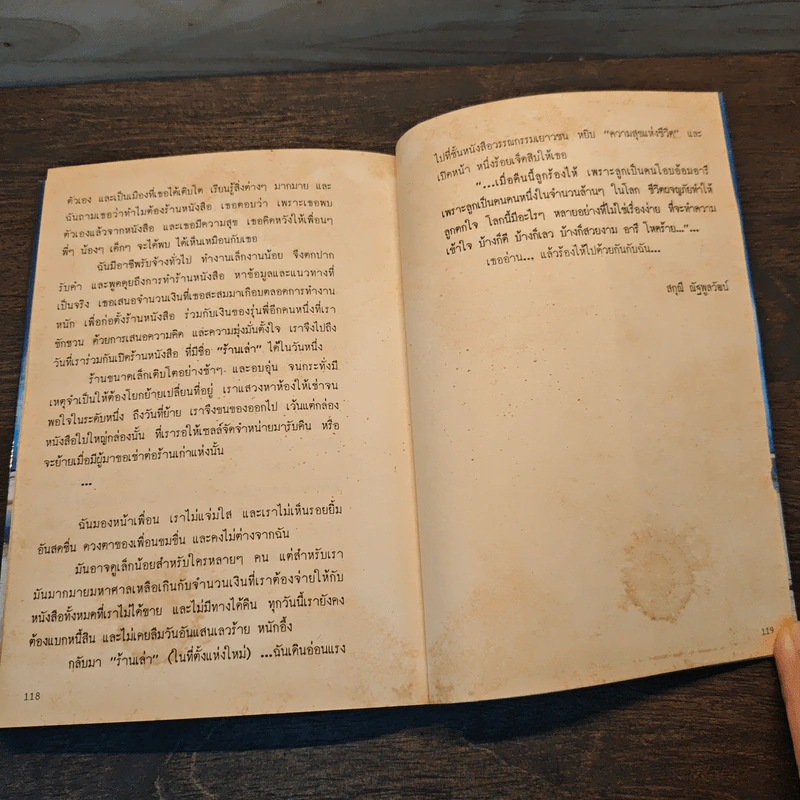 ตัวเอง และเป็นเมืองที่เธอได้เติบโต เรียนรู้สิ่งต่างๆ มากมาย และ
ฉันถามเธอว่าทำไมต้องร้านหนังสือ เธอตอบว่า เพราะเธอพบ
ตัวเองแล้วจากหนังสือ และเธอมีความสุข เธอคิดหวังให้เพื่อนๆ
พี่ๆ น้องๆ เด็กๆ จะได้พบ ได้เห็นเหมือนกับเธอ
ฉันมีอาชีพรับจ้างทั่วไป ทำงานเล็กงานน้อย จึงตกปาก
รับคำ และพูดคุยถึงการทำร้านหนังสือ หาข้อมูลและแนวทางที่
เป็นจริง เธอเสนอจำนวนเงินที่เธอสะสมมาเกือบตลอดการทำงาน
หนัก เพื่อก่อตั้งร้านหนังสือ ร่วมกับเงินของรุ่นพี่อีกคนหนึ่งที่เรา
ชักชวน ด้วยการเสนอความคิด และความมุ่งมั่นตั้งใจ เราจึงไปถึง
วันที่เราร่วมกันเปิดร้านหนังสือ ที่มีชื่อ "ร้านเล่า" ได้ในวันหนึ่ง
ร้านขนาดเล็กเติบโตอย่างช้าๆ และอบอุ่น จนกระทั่งมี
เหตุจำเป็นให้ต้องโยกย้ายเปลี่ยนที่อยู่ เราแสวงหาห้องให้เช่าจน
พอใจในระดับหนึ่ง ถึงวันที่ย้าย เราจึงขนของออกไป เว้นแต่กล่อง
หนังสือใบใหญ่กล่องนั้น ที่เรารอให้เซลล์จัดจำหน่ายมารับคืน หรือ
จะย้ายเมื่อมีผู้มาขอเช่าต่อร้านเก่าแห่งนั้น
...
ฉันมองหน้าเพื่อน เราไม่แจ่มใส และเราไม่เห็นรอยยิ้ม
อันสดชื่น ดวงตาของเพื่อนขมขื่น และคงไม่ต่างจากฉัน
มันอาจดูเล็กน้อยสำหรับใครหลายๆ คน แต่สำหรับเรา
มันมากมายมหาศาลเหลือเกินกับจำนวนเงินที่เราต้องจ่ายให้กับ
หนังสือทั้งหมดที่เราไม่ได้ขาย และไม่มีทางได้คืน ทุกวันนี้เรายังคง
ต้องแบกหนี้สิน และไม่เคยลืมวันอันแสนเลวร้าย หนักอึ้ง
กลับมา "ร้านเล่า" (ในที่ตั้งแห่งใหม่) ...ฉันเดินอ่อนแรง
118
ไปที่ชั้นหนังสือวรรณกรรมเยาวชน หยิบ "ความสุขแห่งชีวิต" และ
เปิดหน้า หนึ่งร้อยเจ็ดสิบให้เธอ
"...เมื่อคืนนี้ลูกร้องไห้ เพราะลูกเป็นคนโอบอ้อมอารี
เพราะลูกเป็นคนคนหนึ่งในจำนวนล้านๆ ในโลก ชีวิตผจญภัยทำให้
ลูกตกใจ โลกนี้มีอะไรๆ หลายอย่างที่ไม่ใช่เรื่องง่าย ที่จะทำความ
เข้าใจ บ้างก็ดี บ้างก็เลว บ้างก็สวยงาม อารี โหดร้าย..."...
เธออ่าน... แล้วร้องไห้ไปด้วยกันกับฉัน...
สกุณี ณัฐพูลวัฒน์
119